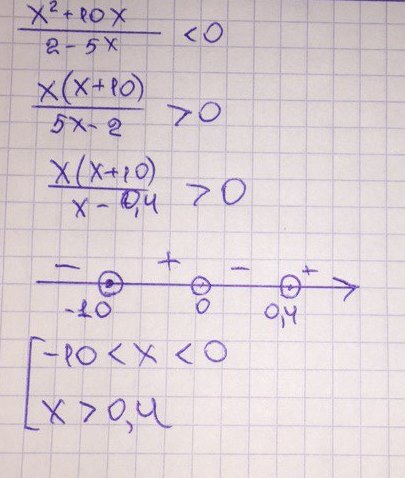 x² + 10x / 2 - 5x < 0
x(x+10) / 5x - 2 > 0
x(x+10) / x - 0,4 > 0
- + - +
-10 0 0,4
[ -10 < x < 0
x > 0,4